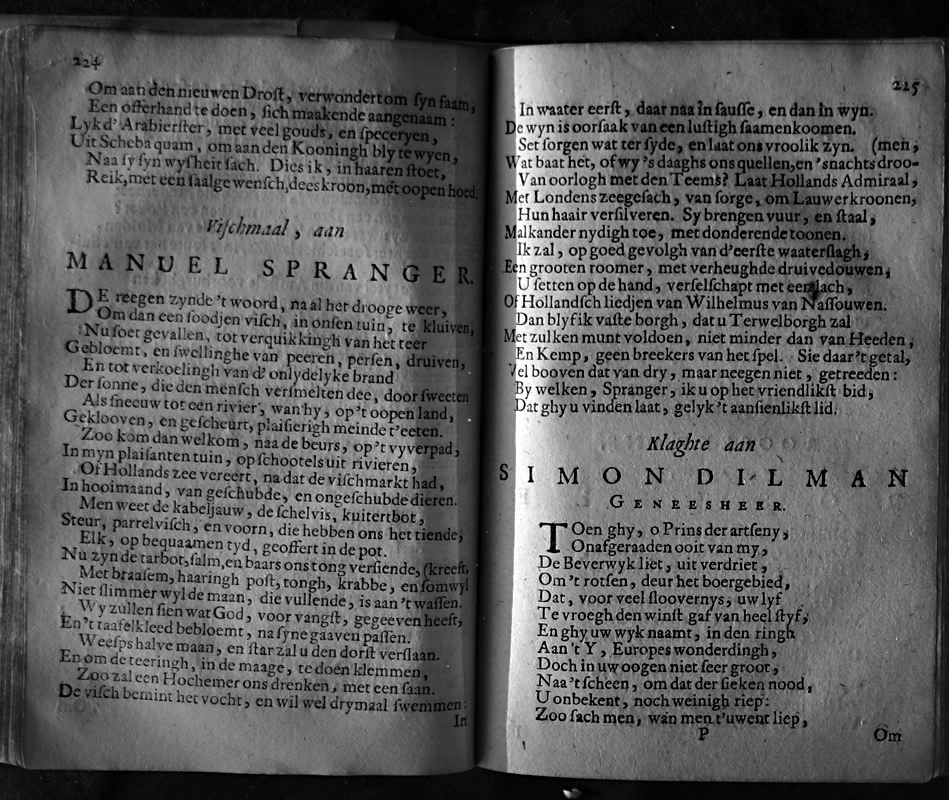 224
Om aan den nieuwen Droſt, verwondert om ſyn faam,
Een offerhand te doen, ſich maakende aangenaam:
Lyk d'Arabierſter, met veel gouds, en ſpeceryen,
Uit Scheba quam, om aan den Kooningh bly te wyen,
Naa ſy ſyn wyſheit ſach. Dies ik, in haaren ſtoet,
Reik, met een ſaalge wenſch, dees kroon, met oopen hoed.
Viſchmaal, aan
MANUEL SPRANGER.
DE reegen zynde 't woord, na al het drooge weer,
Om dan een ſoodjen viſch, in onſen tuin, te kluiven,
Nu ſoet gevallen, tot verquikkingh van het teer
Gebloemt, en ſwellinghe van peeren, perſen, druiven,
En tot verkoelingh van d'onlydelyke brand
Der ſonne, die den menſch verſmelten dee, door ſweeten
Als ſneeuw tot een rivier, wan hy, op 't oopen land,
Geklooven, en geſcheurt, plaiſierigh meinde t'eeten.
Zoo kom dan welkom, naa de beurs, op 't vyverpad,
In myn plaiſanten tuin, op ſchootels uit rivieren,
Of Hollands zee vereert, na dat de viſchmarkt had,
In hooimaand, van geſchubde, en ongeſchubde dieren.
Men weet de kabeljauw, de ſchelvis, kuitertbot,
Steur, parrelviſch, en voorn, die hebben ons het tiende,
Elk, op bequaamen tyd, geoffert in de pot.
Nu zyn de tarbot, ſalm, en baars ons tong verſiende, (kreeft,
Met braaſem, haaringh poſt, tongh, krabbe, en ſomwyl
Niet ſlimmer wyl de maan, die vullende, is aan 't waſſen.
Wy zullen ſien wat God, voor vangſt, gegeeven heeft,
En 't taafelkleed bebloemt, na ſyne gaaven paſſen.
Weeſps halve maan, en ſtar zal u den dorſt verſlaan.
En om de teeringh, in de maage, te doen klemmen,
Zoo zal een Hochemer ons drenken, met een ſaan.
De viſch bemint het vocht, en wil wel drymaal ſwemmen:
In
225
In waater eerſt, daar naa in ſauſſe, en dan in wyn.
De wyn is oorſaak van een luſtigh ſaamenkoomen.
Set ſorgen wat ter ſyde, en laat ons vroolik zyn. (men,
Wat baat het, of wy 's daaghs ons quellen, en 'snachts droo-
Van oorlogh met den Teems? Laat Hollands Admiraal,
Met Londens zeegeſach, van ſorge, om Lauwerkroonen,
Hun haair verſilveren. Sy brengen vuur, en ſtaal,
Malkander nydigh toe, met donderende toonen.
Ik zal, op goed gevolgh van d'eerſte waaterſlagh,
Een grooten roomer, met verheughde druivedouwen,
U ſetten op de hand, verſelſchapt met een lach,
Of Hollandſch liedjen van Wilhelmus van Naſſouwen.
Dan blyf ik vaſte borgh, dat u Terwelborgh zal
Met zulken munt voldoen, niet minder dan van Heeden,
En Kemp, geen breekers van het ſpel. Sie daar 't getal,
Vel booven dat van dry, maar neegen niet, getreeden:
By welken, Spranger, ik u op het vriendlikſt bid,
Dat ghy u vinden laat, gelyk 't aanſienlikſt lid.
Klaghte aan
SIMON DILMAN
GENEESHEER.
TOen ghy, o Prins der artſeny,
Onafgeraaden ooit van my,
De Beverwyk liet, uit verdriet,
Om 't rotſen, deur het boergebied,
Dat, voor veel ſloovernys, uw lyf
Te vroegh den winſt gaf van heel ſtyf,
En ghy uw wyk naamt, in den ringh
Aan 't Y, Europes wonderdingh,
Doch in uw oogen niet ſeer groot,
Naa 't ſcheen, om dat der ſieken nood,
U onbekent, noch weinigh riep:
Zoo ſach men, wan men t'uwent liep,
P
Om